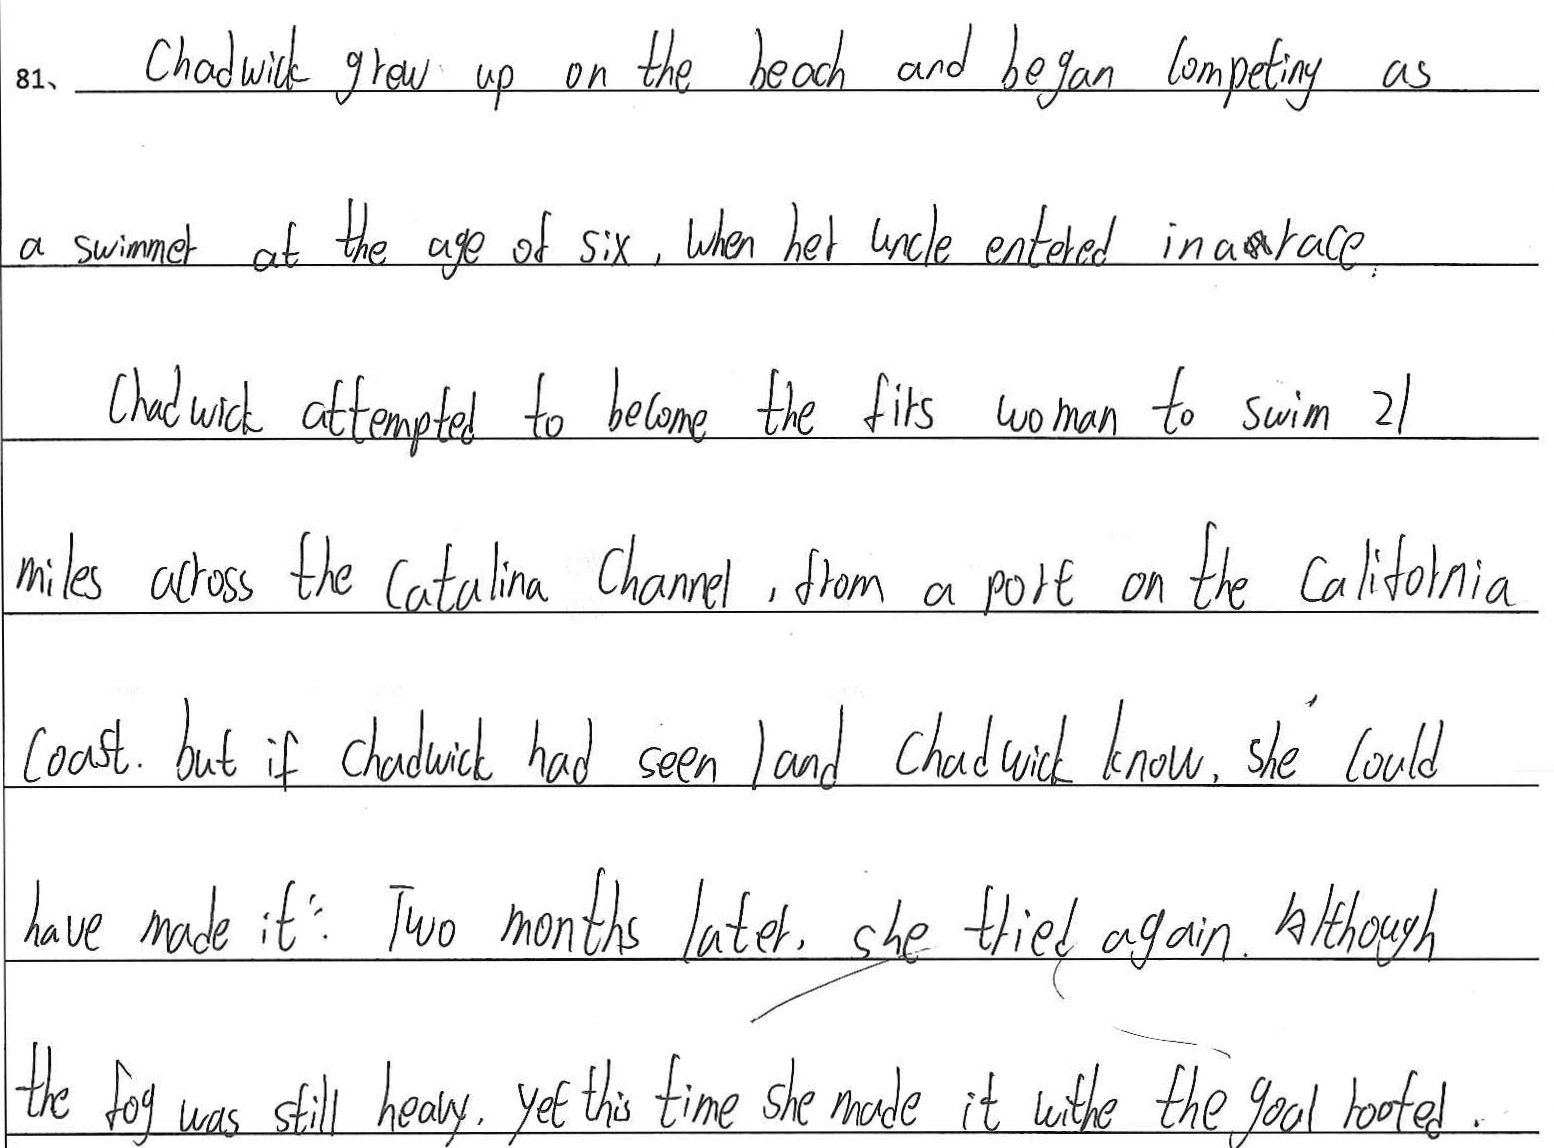 81、 Chadwick grow up on the beach and began competing as
a swimmer at the age of six, when her uncle entered in a race.
Chadwick attempted to become the firs woman to swim 21
miles across the Catalina Channel, from a port on the California
coast. but if Chadwick had seen land Chadwick know, she could
have made it". Two months later, she tried again. Although
the fog was still heavy. yet this time she made it withe the goal rooted.